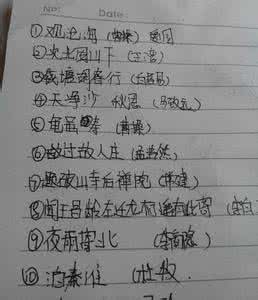 No: Date:
①观沧海 (曹操) 
②次北固山下 (王湾)
③钱塘湖春行 (白居易)
④天净沙 秋思 (马致远)
⑤龟虽寿 (曹操)
⑥过故人庄 (孟浩然)
⑦题破山寺后禅院 (常建)
⑧闻王昌龄左迁龙标遥有此寄 (李白
⑨夜雨寄北 (李商隐)
⑩泊秦淮 (杜牧